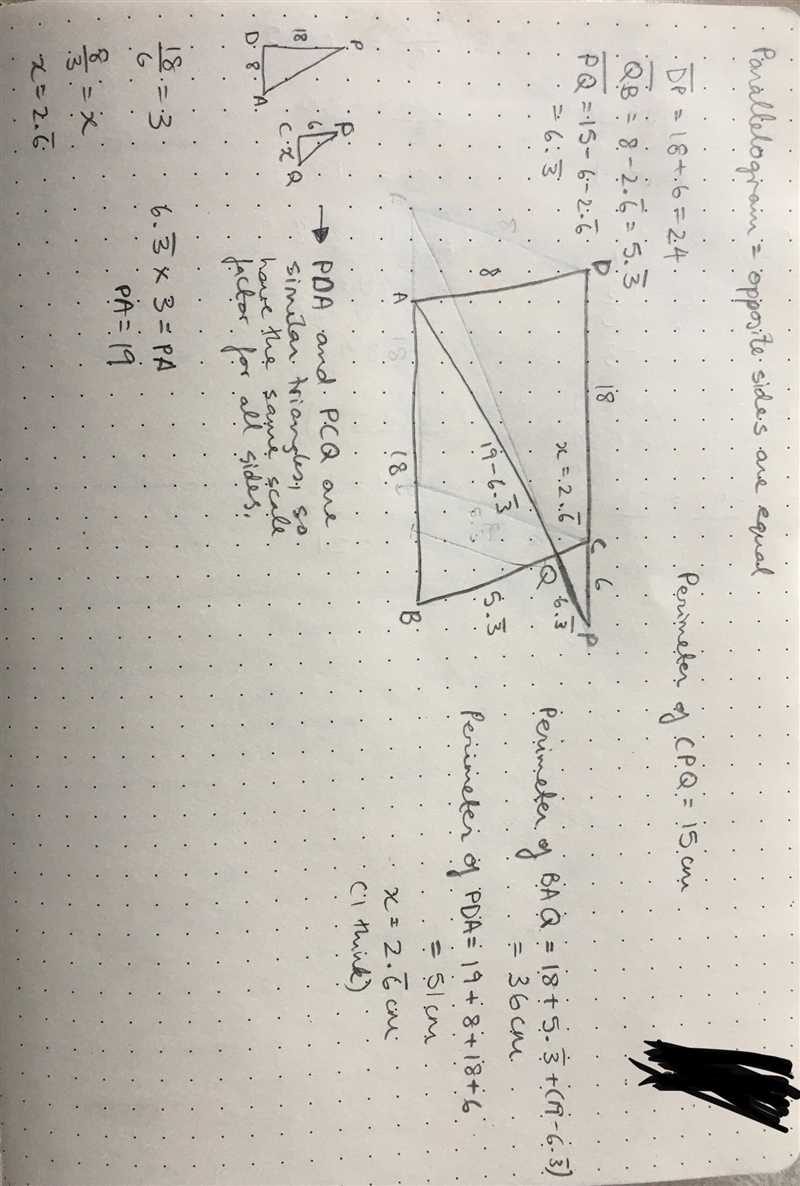 Parallelogram = opposite sides are equal
DP = 18+6 = 24
QB = 8-2.6̅ = 5.3̅
PQ = 15-6-2.6̅
= 6.3̅
Perimeter of CPQ = 15 cm
D
18
C
6
P
8
x=2.6̅
Q
6.3̅
19-6.3̅
5.3̅
A
18
B
Perimeter of BAQ = 18+5.3̅+(19-6.3̅)
= 36 cm
Perimeter of PDA = 19+8+18+6
= 51 cm
x = 2.6̅ cm
(I think)
P
18
D
8
A
P
6
C
x
Q
→ PDA and PCQ are
similar triangles, so
have the same scale
factor for all sides.
18/6 = 3
8/3 = x
x = 2.6̅
6.3̅ × 3 = PA
PA = 19